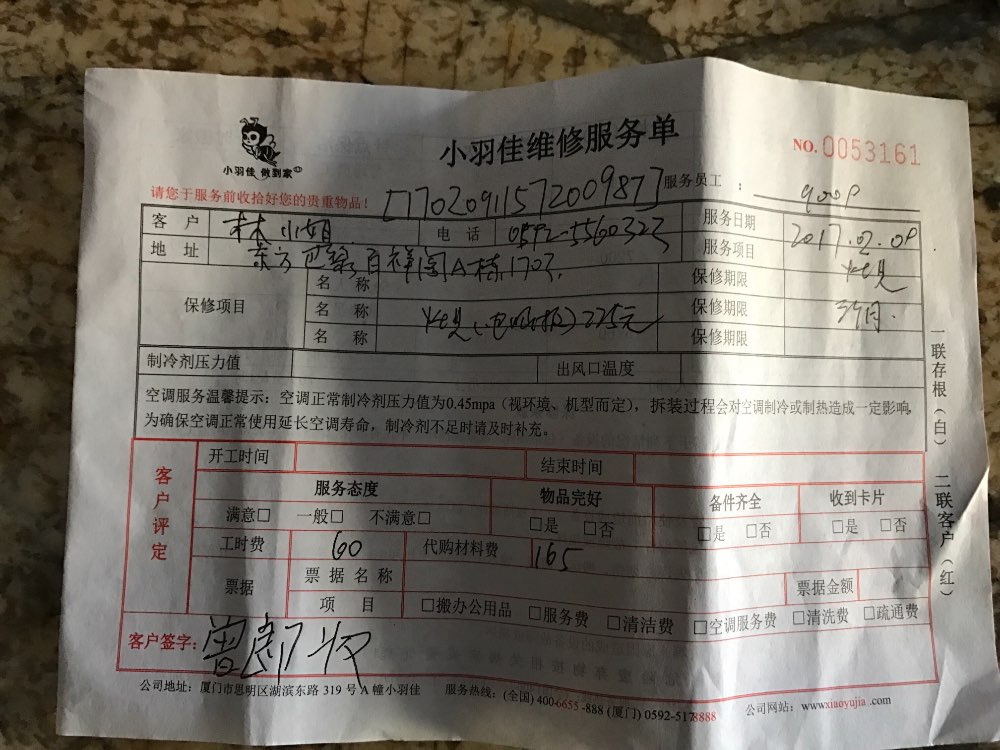 小羽佳 做到家
小羽佳维修服务单
NO. 0053161
请您于服务前收拾好您的贵重物品!
[170209115720098​7]
服务员工:
客户 林小姐 电话 0592-5560323 服务日期 2017.02.09
地址 东方巴黎百祥阁A栋1703. 服务项目
保修项目
名称 保修期限
名称 225元 保修期限 三个月.
名称 保修期限
制冷剂压力值 出风口温度
空调服务温馨提示:空调正常制冷剂压力值为0.45mpa(视环境、机型而定),拆装过程会对空调制冷或制热造成一定影响,
为确保空调正常使用延长空调寿命,制冷剂不足时请及时补充。
客户评定
开工时间 结束时间
服务态度 物品完好 备件齐全 收到卡片
满意□ 一般□ 不满意□ □是 □否 □是 □否 □是 □否
工时费 60 代购材料费 165
票据 票据名称 票据金额
项目 □搬办公用品 □服务费 □清洁费 □空调服务费 □清洗费 □疏通费
客户签字:
公司地址:厦门市思明区湖滨东路 319 号 A 幢小羽佳 服务热线:(全国) 400-6655-888 (厦门) 0592-5178888 公司网站:www.xiaoyujia.com
一联存根(白) 二联客户(红)